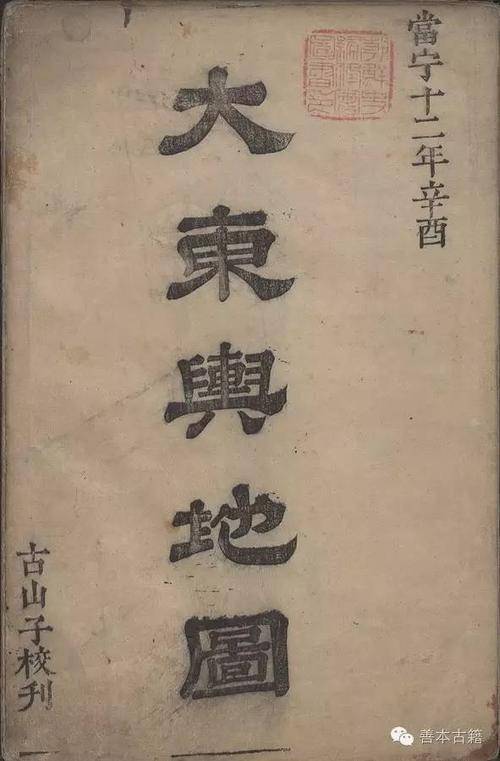 當宁十二年辛酉
大東輿地圖
古山子校刊
善本古籍